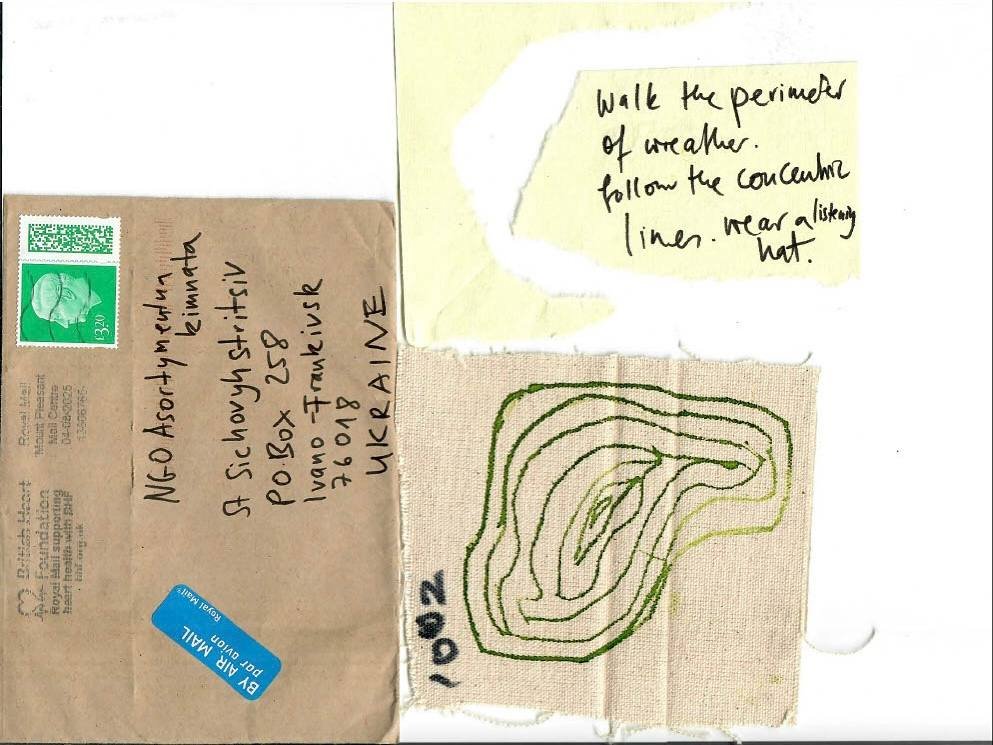 Walk the perimeter
of weather.
follow the concentric
lines. wear a listening
hat.
£3.20
Royal Mail
Mount Pleasant
Mail Centre
04-08-2025
British Heart
Foundation
Royal Mail supporting
heart health with BHF
bhf.org.uk
NGO Asortymentna
kimnata
St Sichovyh Stritsiv
PO.Box 258
Ivano-Frankivsk
76018
UKRAINE
BY AIR MAIL
par avion
Royal Mail®
1002